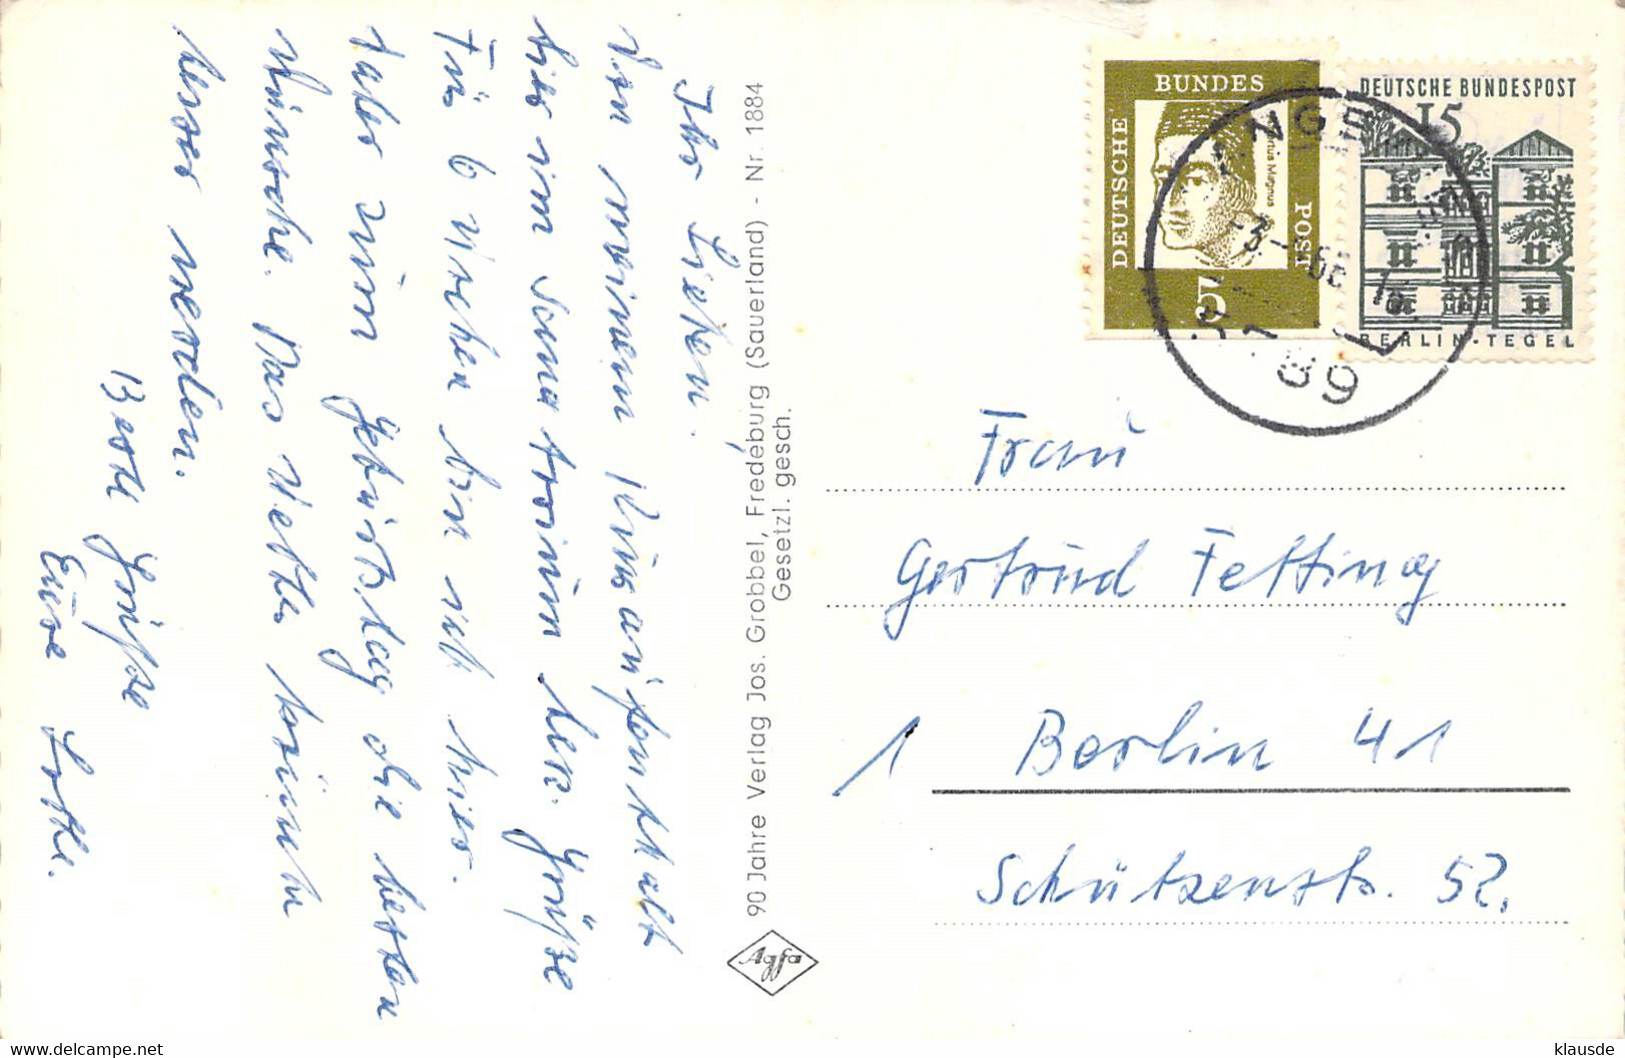 Ihr Lieben!
Von meinem Kuraufenthalt
hier im Sanatorium herz. Grüße
Für 6 Wochen bin ich hier.
Vater zum Geburtstag die besten
Wünsche. Das Wetter könnte
besser werden.
Beste Grüße
Eure Lotte.
90 Jahre Verlag Jos. Grobbel, Fredeburg (Sauerland) - Nr. 1884
Gesetzl. gesch.
Agfa
DEUTSCHE
BUNDES
POST
5
DEUTSCHE BUNDESPOST
15
BERLIN-TEGEL
Frau
Gertrud Fetting
1 Berlin 41
Schützenstr. 52.
www.delcampe.net
klausde